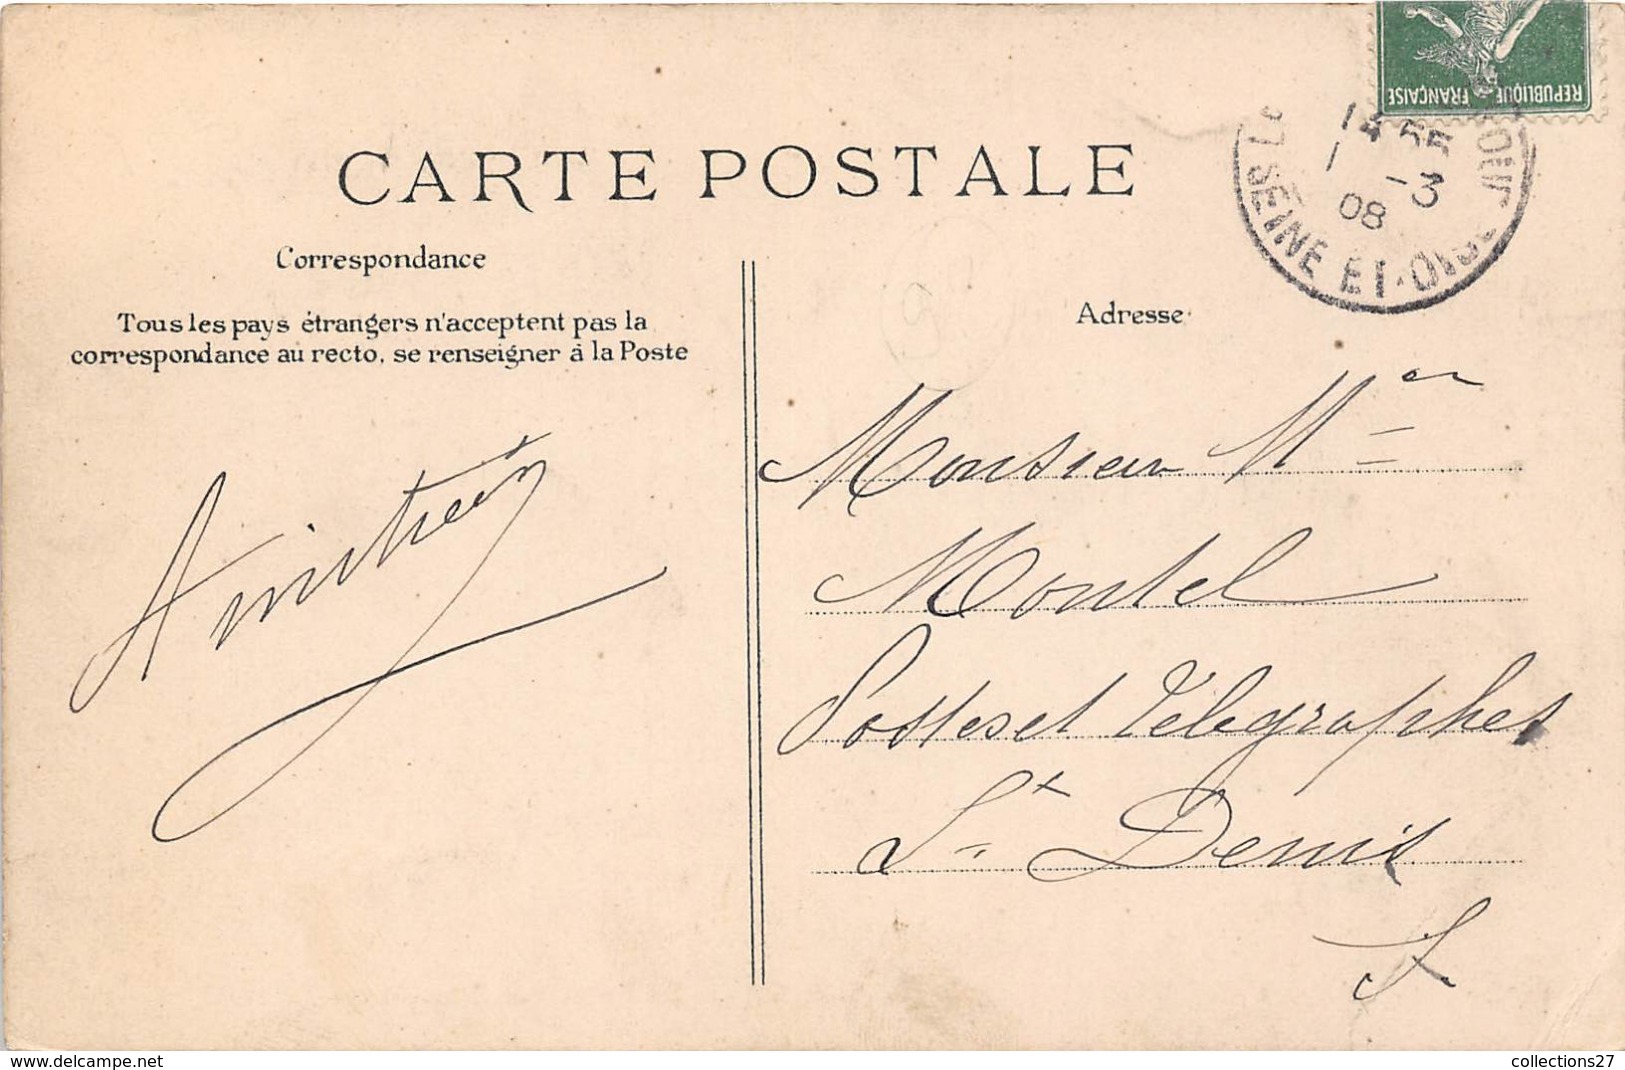 RÉPUBLIQUE FRANÇAISE
14 55
1 -3
08
SEINE ET-OISE
CARTE POSTALE
Correspondance
Tous les pays étrangers n'acceptent pas la
correspondance au recto, se renseigner à la Poste
Adresse
Monsieur
Montel
Postes et Télégraphes
St Denis
S.
www.delcampe.net
collections27